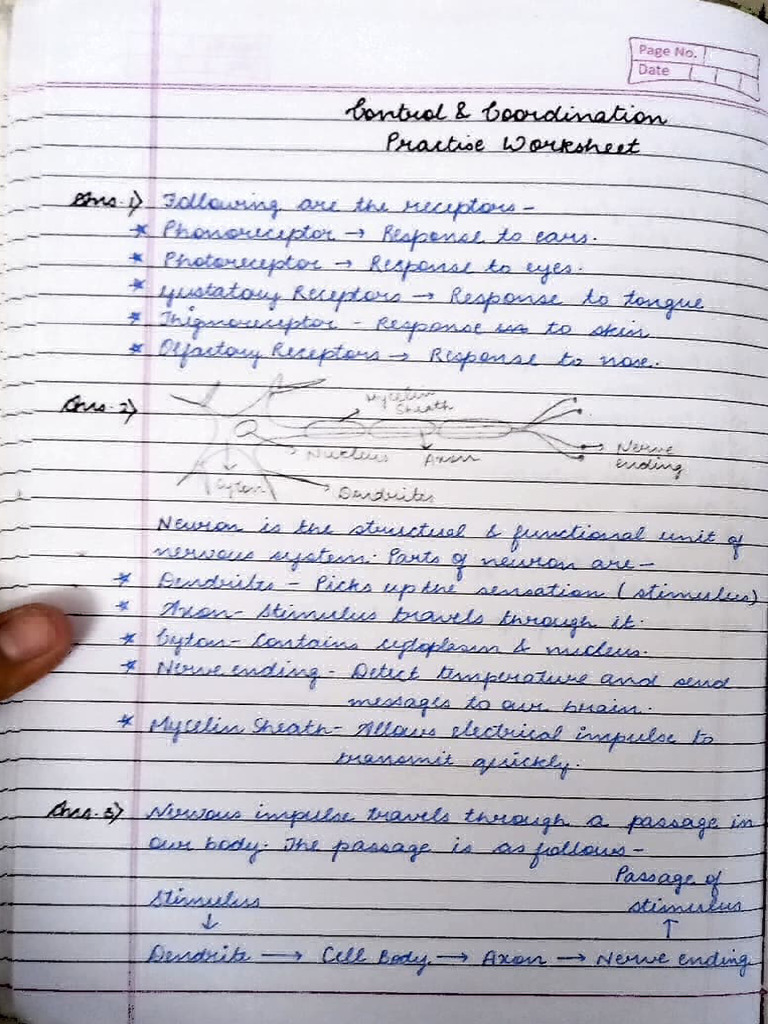 Page No.
Date
Control & Coordination
Practise Worksheet
Ans.1) Following are the receptors -
* Phonoreceptor → Response to ears.
* Photoreceptor → Response to eyes.
* Gustatory Receptors → Response to tongue
* Thigmoreceptor - Response to skin
* Olfactory Receptors → Response to nose.
Ans.2)
Mycelin
Sheath
Nucleus
Axon
Nerve
ending
Cyton
Dendrites
Neuron is the structual & functional unit of
nervous system. Parts of neuron are -
* Dendrites - Picks up the sensation (stimulus)
* Axon - Stimulus travels through it.
* Cyton - Contains cytoplasm & nucleus.
* Nerve ending - Detect temperature and send
messages to our brain.
* Mycelin Sheath - Allows electrical impulse to
transmit quickly.
Ans.3) Nervous impulse travels through a passage in
our body. The passage is as follows -
Passage of
Stimulus stimulus
↓ ↑
Dendrite → Cell Body → Axon → Nerve ending